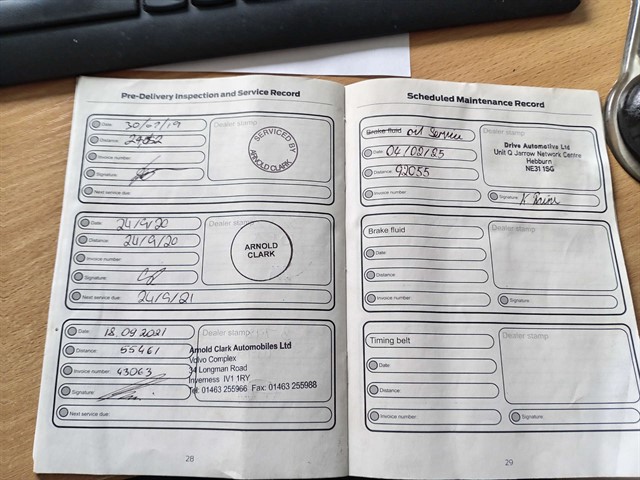 Pre-Delivery Inspection and Service Record
Date: 30/09/19
Distance:
Invoice number:
Signature:
Next service due:
Dealer stamp
SERVICED BY
ARNOLD CLARK
Date: 24/9/20
Distance: 24/9/20
Invoice number:
Signature:
Next service due: 24/9/21
Dealer stamp
ARNOLD
CLARK
Date: 18 09 2021
Distance: 55461
Invoice number: 43063
Signature:
Next service due:
Dealer stamp
Arnold Clark Automobiles Ltd
Volvo Complex
34 Longman Road
Inverness IV1 1RY
Tel: 01463 255966 Fax: 01463 255988
28
Scheduled Maintenance Record
Brake fluid Oil Service
Date: 04/02/25
Distance: 92055
Invoice number:
Dealer stamp
Drive Automotive Ltd
Unit Q Jarrow Network Centre
Hebburn
NE31 1SG
Signature:
Brake fluid
Date
Distance
Invoice number:
Dealer stamp
Signature:
Timing belt
Date:
Distance:
Invoice number:
Dealer stamp
Signature:
29